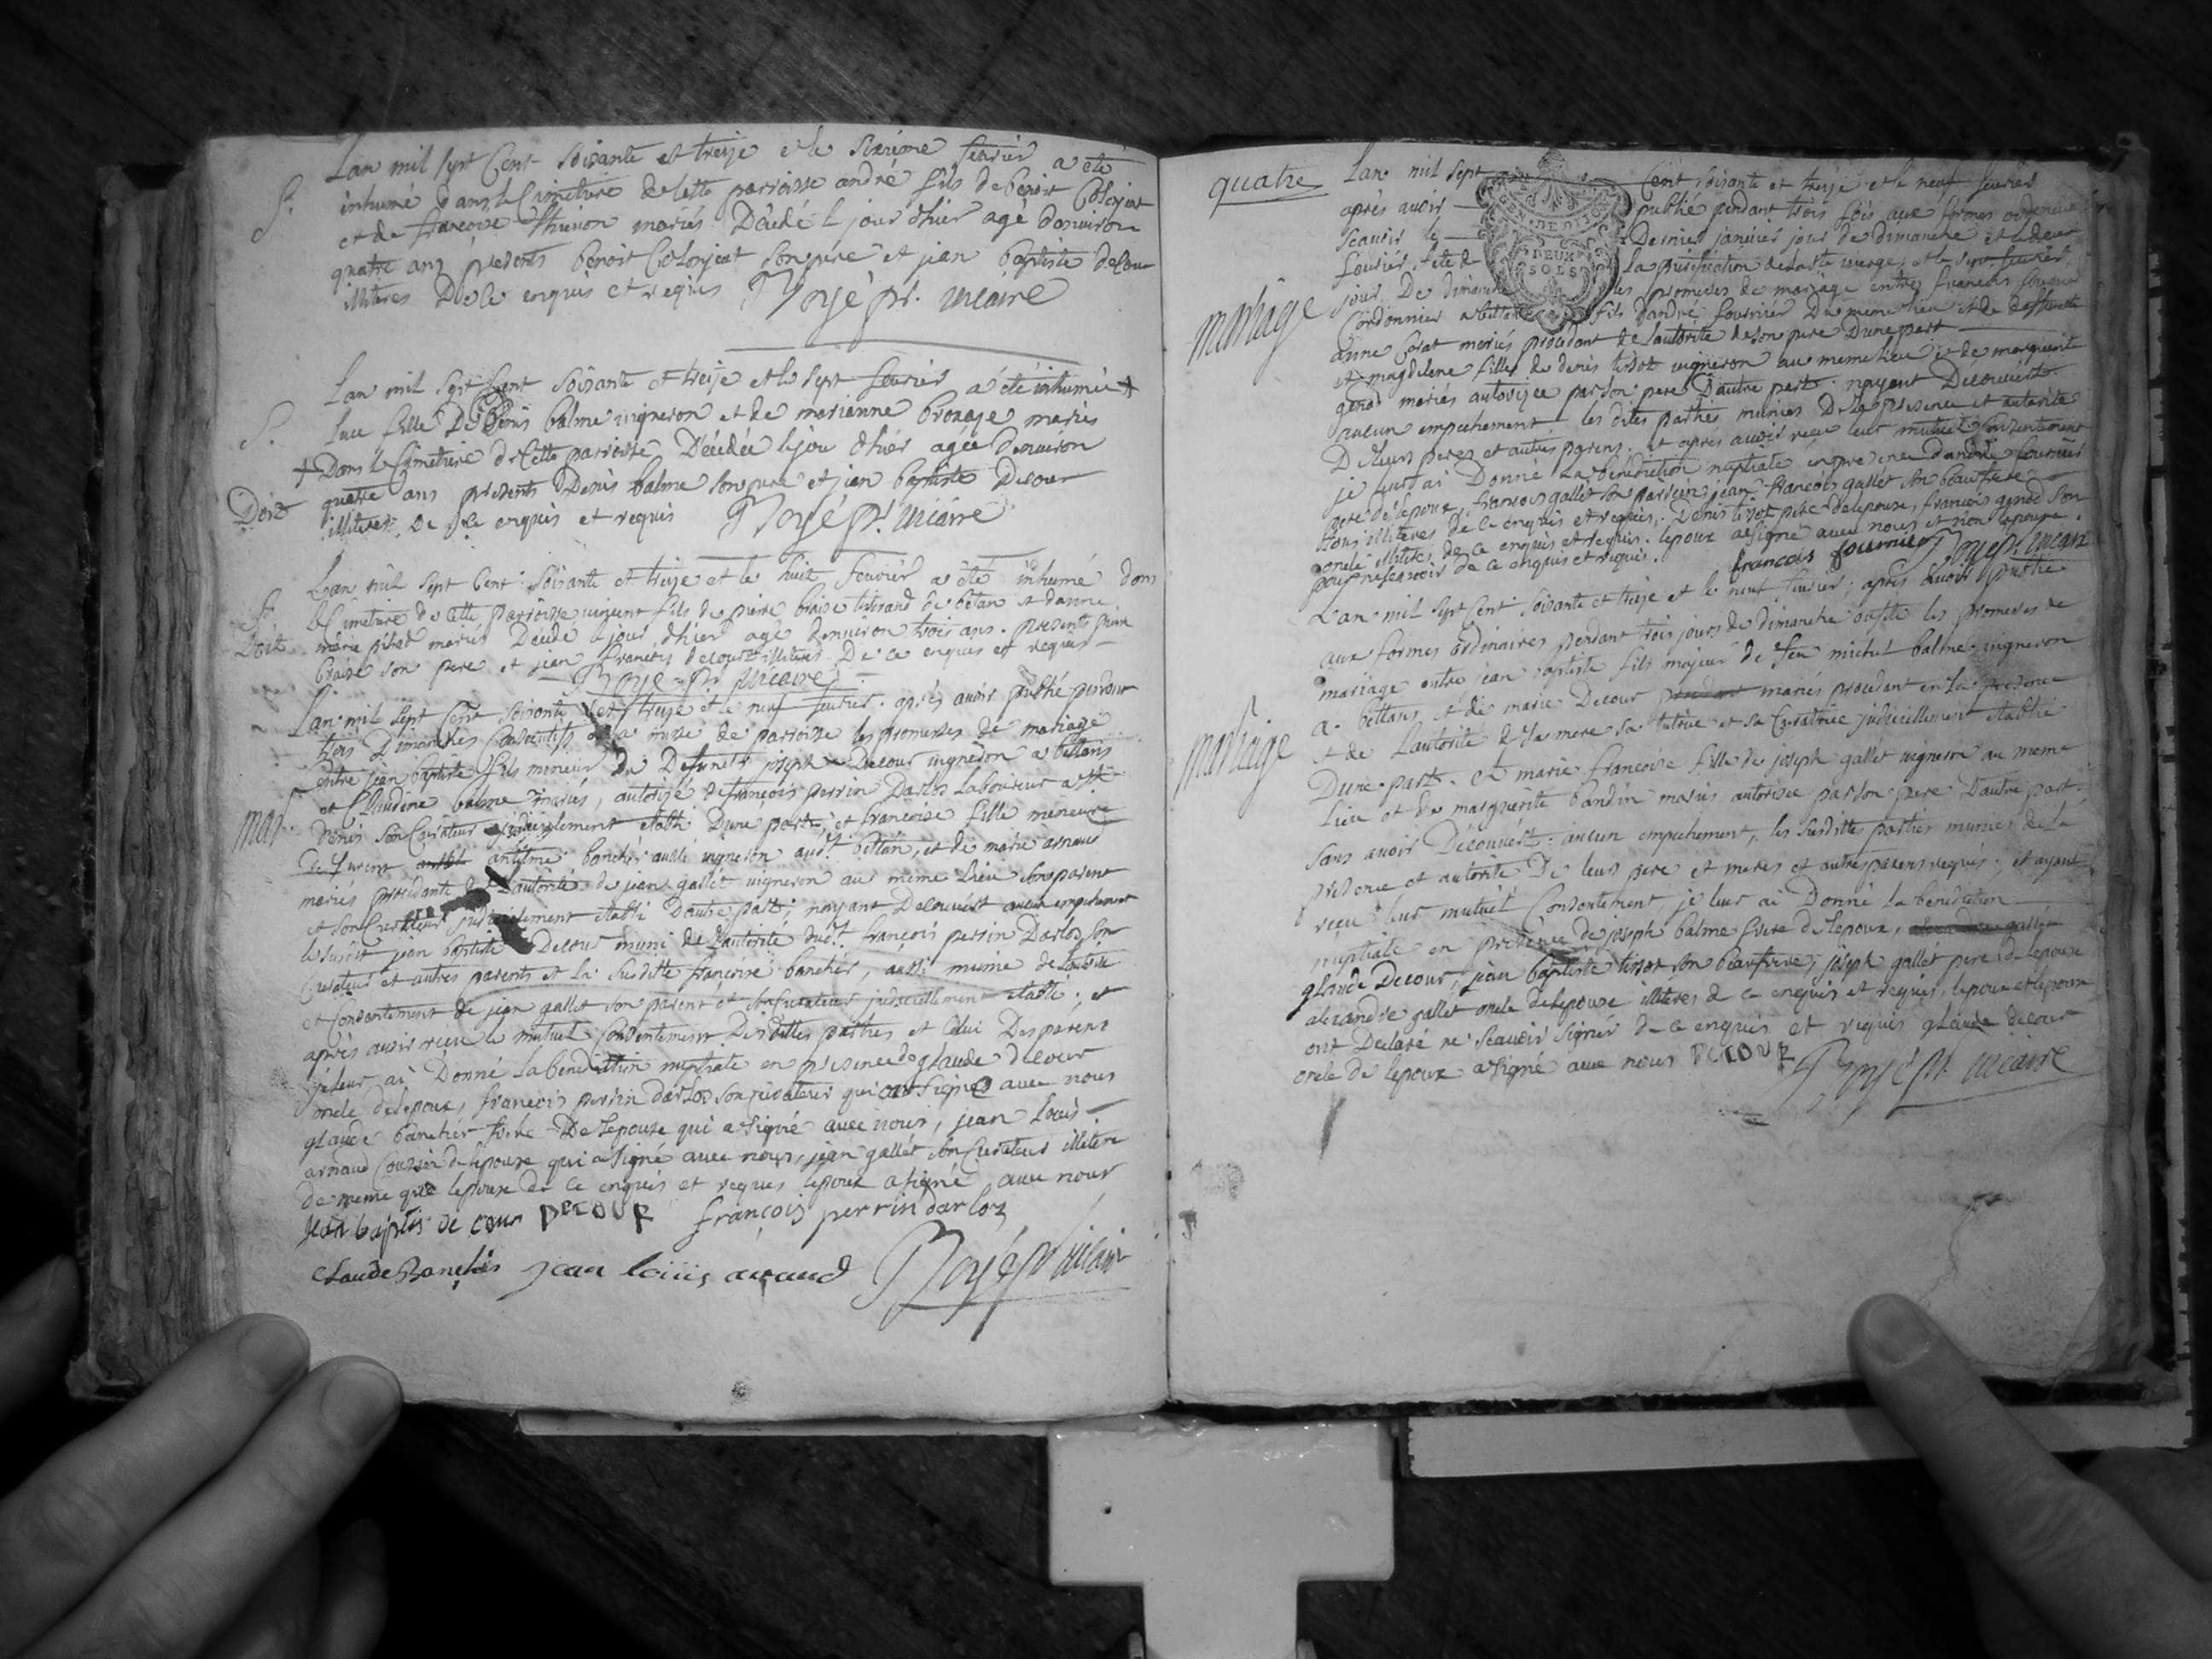 Lan mil sept Cent soixante et treize et le sixième fevrier a eté
S. inhumé dans le Cimetiere de cette parroisse andré fils de benoit Colonjeat
et de francoise thevenon mariés Décédé le jour d'hier agé d'environ
quatre ans présents benoit Colonjeat son pere et jean baptiste decour
illiteres De ce enquis et requis Royé pr. vicaire
Lan mil sept Cent soixante et treize et le sept fevrier a été inhumée +
S. luce fille De Denis balme vigneron et de marianne mariés
+ Dans le Cimetiere de Cette parroisse Décédée le jour d'hier agée denviron
quatre ans présents Denis balme son pere et jean baptiste Decour
illiteres De ce enquis et requis Royé pr. vicaire
Lan mil sept Cent soixante et treize et le huit fevrier a été inhumé dans
le Cimetiere de Cette parroisse vincent fils de pierre braise tisserand de bétan et danne
marie mariés Décédé le jour d'hier agé denviron trois ans. présents pierre
braise son pere et jean francois decour illiteres De ce enquis et requis
Royé pr. vicaire
Lan mil sept Cent soixante et treize et le neuf fevrier. après avoir publié pendant
trois Dimanches Consécutifs a la messe de parroisse les promesses de mariage
mar. entre jean baptiste fils mineur De Defunct joseph Decour vigneron a bettans
et Claudine balme mariés, autorizé de francois perrin Darloz laboureur a St
Denis son Curateur judiciellement etabli Dune part, et francoise fille mineure
De furent antelme banchet aussi vigneron audt. bettan, et de marie arnaud
mariés procédante de l'autorité de jean gallet vigneron au même lieu son parent
et son Curateur judiciellement etabli Dautre part; nayant Decouvert aucun empechement
le susdit jean baptiste Decour muni de l'autorité dudt. francois perrin Darloz son
Curateur et autres parents et la susditte francoise banchet, aussi munie de l'autorité
et Consentement de jean gallet son parent et son Curateur judiciellement etabli; et
après avoir receu le mutuel Consentement Desdittes parties et Celui Des parens
je leur ai Donné la benediction nuptiale en présence de glaude decour
oncle de l'epoux, francois perrin darloz son Curateur qui ont signés avec nous
glaude banchet frere De l'epouse qui a signé avec nous, jean louis
arnaud Cousin de l'epouse qui a signé avec nous, jean gallet son Curateur illitere
de meme que l'epouse de ce enquis et requis l'epoux a signé avec nous
jean baptis de cour DECOUR françois perrin darloz
Claude Banchet jean louis arnaud Royé pr. vicaire
quatre
Lan mil sept Cent soixante et treize et le neuf fevrier
après avoir publié pendant trois fois aux formes ordinaires
scavoir le Dernier janvier jour de dimanche et le deux
fevrier fete de la purification de la ste vierge, et le sept fevrier
GEN. DE DIJON
DEUX SOLS
mariage
jour De dimanche les promesses de mariage entre francois fournier
Cordonnier a bettans fils dandré fournier Du meme lieu et de deffunte
anne mariés procedant de l'autorité de son pere Dune part
et magdelene fille de denis tissot vigneron au meme lieu et de marguerite
mariés autorizée par son pere Dautre part. nayant Decouvert
aucun empechement les dites parties munies De la presence et autorité
De leurs peres et autres parens. et après avoir receu leur mutuel Consentement
je leur ai Donné la benediction nuptiale en présence dandré fournier
pere de l'epoux, francois gallet son parrein, jean francois gallet son beaufrere
tous illiteres de ce enquis et requis, Denis tissot pere de l'epouse, francois son
oncle illiteres de ce enquis et requis. l'epoux a signé avec nous et non l'epouse
pour ne scavoir de ce enquis et requis. françois fournier Royé pr. vicaire
Lan mil sept Cent soixante et treize et le neuf fevrier; après avoir publié
aux formes ordinaires pendant trois jours de dimanche les promesses de
mariage entre jean baptiste fils majeur de feu michel balme vigneron
mariage
a bettans et de marie Decour mariés procedant en la presence
et de l'autorité de sa mere sa tutrice et sa Curatrice judiciellement etablie
Dune part. et marie francoise fille de joseph gallet vigneron au meme
lieu et de marguerite bandin mariés autorizée par son pere Dautre part.
sans avoir Découvert aucun empechement, les susdittes parties munies de la
présence et autorité De leurs pere et meres et autres parens requis, et ayant
receu leur mutuel Consentement je leur ai Donné la benediction
nuptiale en présence de joseph balme frere de l'epoux,
glaude Decour, jean baptiste tissot son beaufrere, joseph gallet pere de l'epouse
alexandre gallet oncle de l'epouse illiteres de ce enquis et requis, l'epoux et l'epouse
ont Declaré ne scavoir signer de ce enquis et requis glaude decour
oncle de l'epoux a signé avec nous DECOUR Royé pr. vicaire